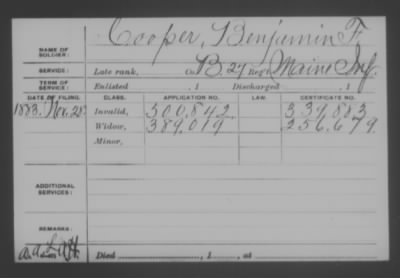 Cooper, Benjamin F.
NAME OF SOLDIER:
SERVICE: Late rank, Co. B, 27 Reg't Maine Inf.
TERM OF SERVICE: Enlisted , 1 Discharged , 1
DATE OF FILING. CLASS. APPLICATION NO. LAW. CERTIFICATE NO.
1883, Nov. 28 Invalid, 500,842 339,883
Widow, 389,019 256,679
Minor,
ADDITIONAL SERVICES:
REMARKS:
Died , 1 , at